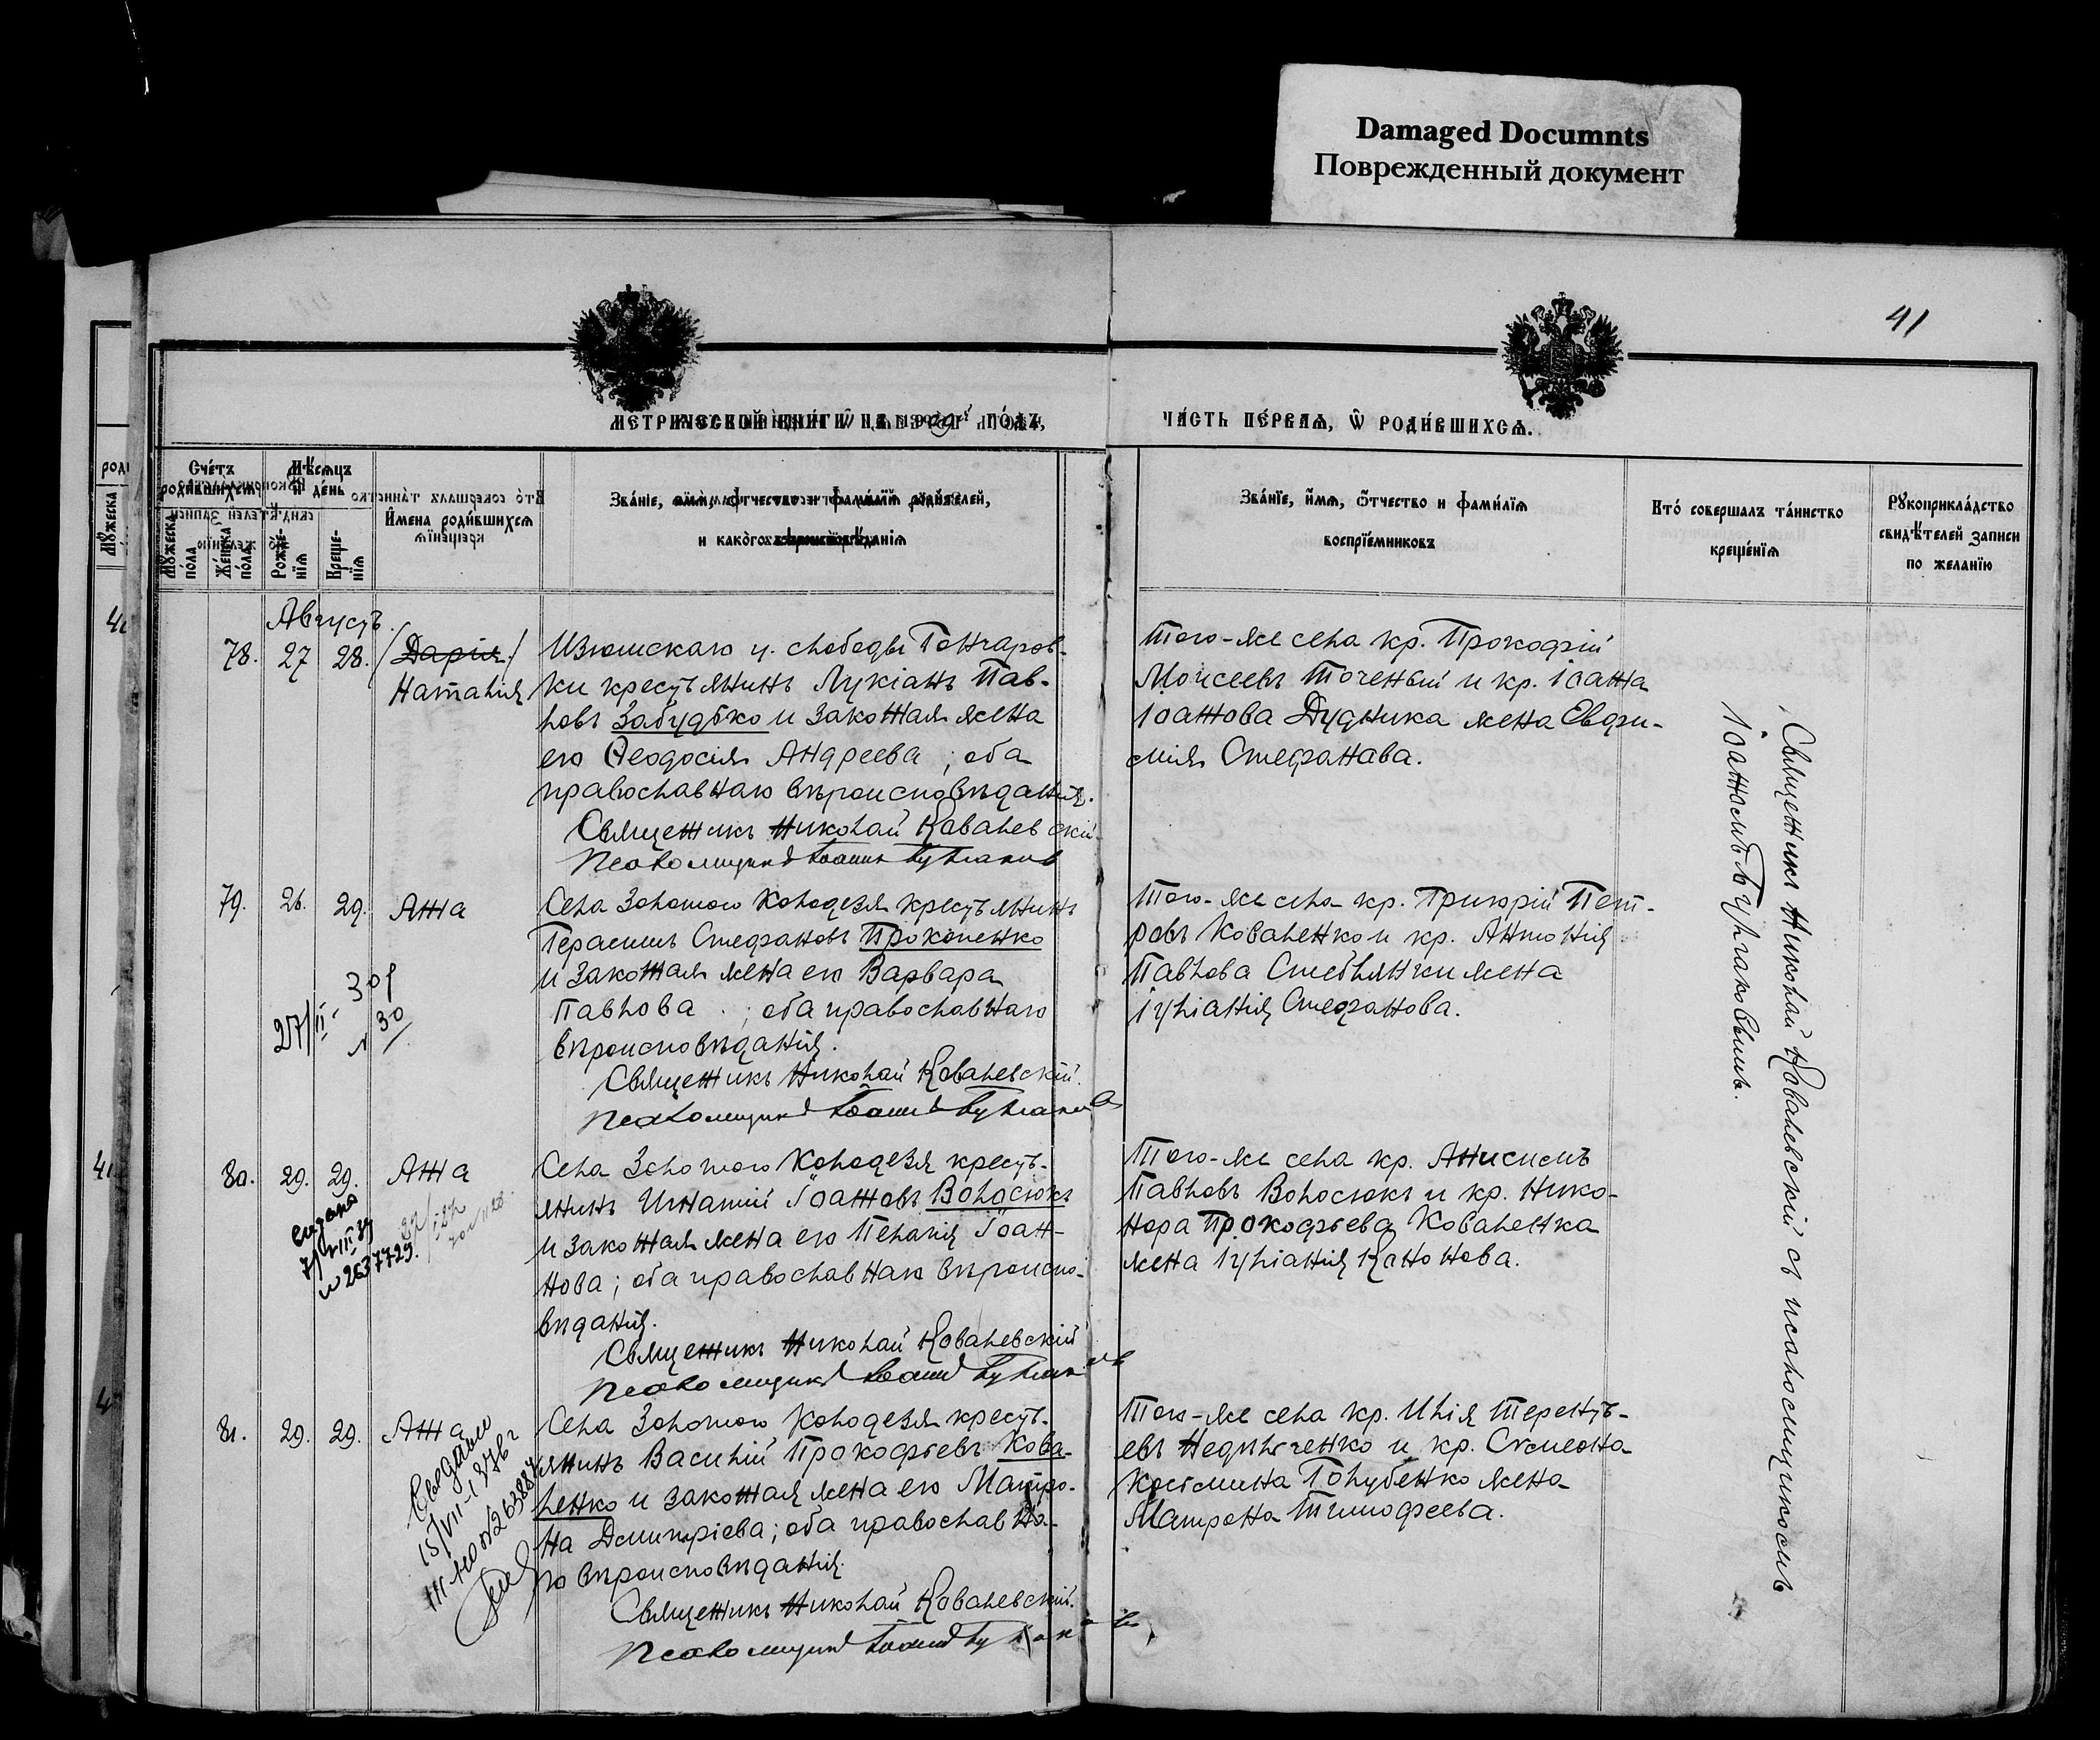 Damaged Documnts
Поврежденный документ
41
МЕТРИЧЕСКОЙ КНИГИ НА 190 ГОДЪ,
ЧАСТЬ ПЕРВАЯ, Ѡ РОДИВШИХСЯ.
Счетъ родившихся
Мѣсяцъ и день
Имена родившихся
Званіе, имя, отчество и фамилія родителей,
и какого вѣроисповѣданія
Званіе, имя, отчество и фамилія
воспріемниковъ
Кто совершалъ таинство
крещенія
Рукоприкладство
свидѣтелей записи
по желанію
Мужеска пола
Женска пола
Рожденія
Крещенія
Августъ
78. 27 28. (Дарія)
Наталія
Изюмскаго у. слободы Гончаров-
ки крестьянинъ Лукіанъ Пав-
ловъ Забудько и законная жена
его Ѳеодосія Андреева; оба
православнаго вѣроисповѣданія.
Священникъ Николай Ковалевскій
Псаломщикъ Іоаннъ
Того-же села кр. Прокофій
Моисеевъ Точеный и кр. Іоанна
Іоаннова Дудника жена Евфи-
мія Стефанова.
79. 26. 29. Анна
Села Золотого Колодезя крестьянинъ
Герасимъ Стефановъ Прокопенко
и законная жена его Варвара
Павлова; оба православнаго
вѣроисповѣданія.
Священникъ Николай Ковалевскій.
Псаломщикъ Іоаннъ
Того-же села кр. Григорій Пет-
ровъ Коваленко и кр. Антонія
Павлова жена
Іуліанія Стефанова.
80. 29. 29. Анна
Села Золотого Колодезя кресть-
янинъ Игнатій Іоанновъ Волосюкъ
и законная жена его Пелагія Іоан-
нова; оба православнаго вѣроиспо-
вѣданія.
Священникъ Николай Ковалевскій
Псаломщикъ Іоаннъ
Того-же села кр. Анисимъ
Павловъ Волосюкъ и кр. Нико-
нора Прокофьева Коваленка
жена Іуліанія
81. 29. 29. Анна
Села Золотого Колодезя кресть-
янинъ Василій Прокофьевъ Кова-
ленко и законная жена его Матро-
на Димитріева; оба православна-
го вѣроисповѣданія.
Священникъ Николай Ковалевскій.
Псаломщикъ Іоаннъ
Того-же села кр. Илія Теренть-
евъ и кр. Симеона
Косьмина Голубенко жена
Матрона Тимофеева.
Священникъ Николай Ковалевскій съ псаломщикомъ
Іоанномъ